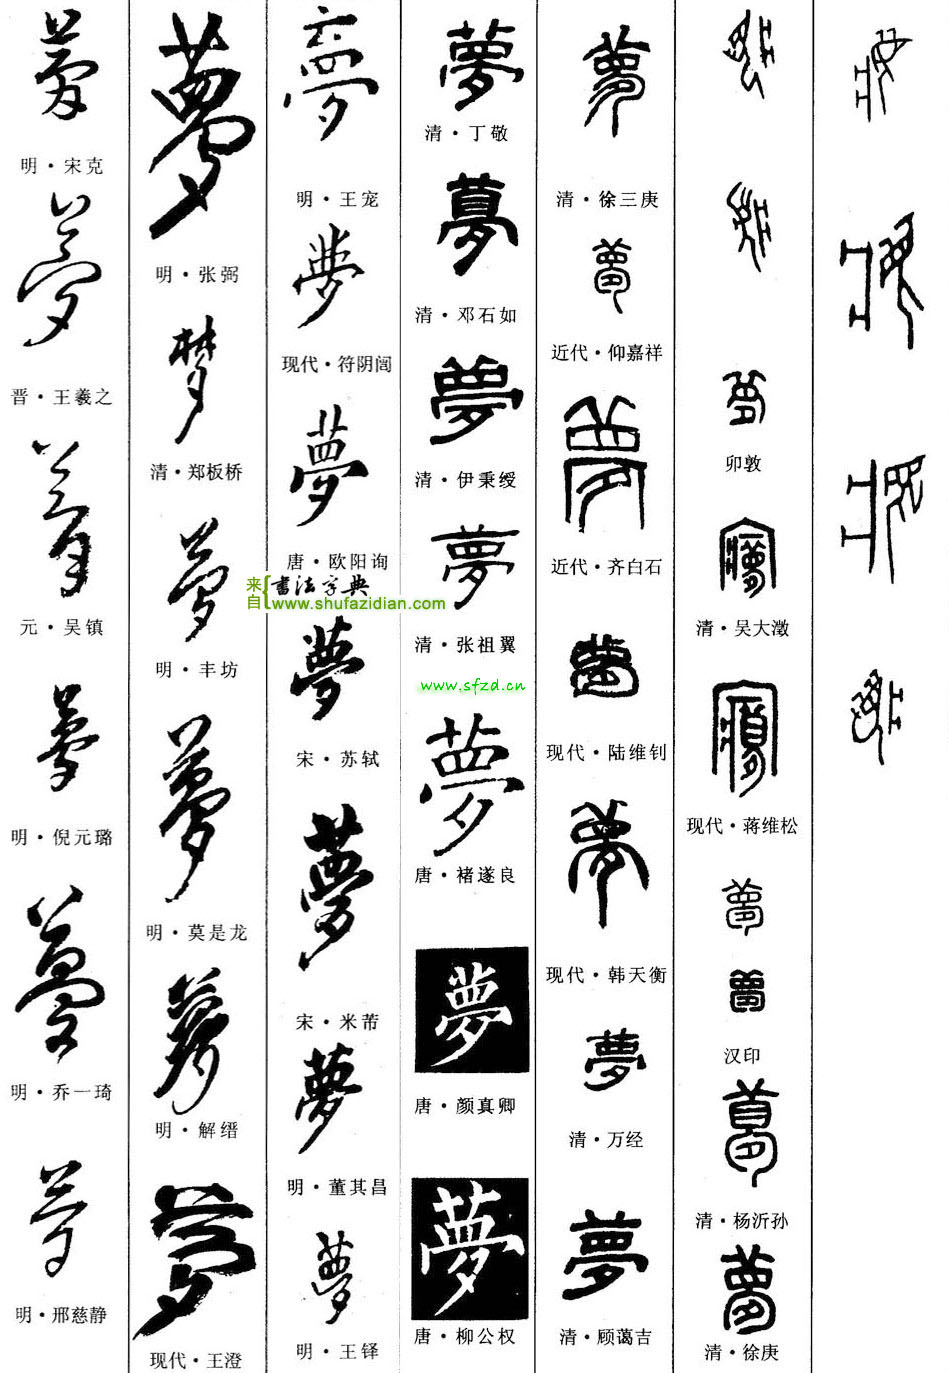 夢
明·宋克
夢
晋·王羲之
夢
元·吴镇
夢
明·倪元璐
夢
明·乔一琦
夢
明·邢慈静
夢
明·张弼
梦
清·郑板桥
夢
明·丰坊
夢
明·莫是龙
夢
明·解缙
夢
现代·王澄
夢
明·王宠
夢
现代·符阴闿
夢
唐·欧阳询
来自
書法字典
www.shufazidian.com
夢
宋·苏轼
夢
宋·米芾
夢
明·董其昌
夢
明·王铎
夢
清·丁敬
夢
清·邓石如
夢
清·伊秉绶
夢
清·张祖翼
www.sfzd.cn
夢
唐·褚遂良
夢
唐·颜真卿
夢
唐·柳公权
夢
清·徐三庚
夢
近代·仰嘉祥
夢
近代·齐白石
夢
现代·陆维钊
夢
现代·韩天衡
夢
清·万经
夢
清·顾蔼吉
夢
卯敦
清·吴大澂
现代·蒋维松
夢
夢
汉印
夢
清·杨沂孙
夢
清·徐庚